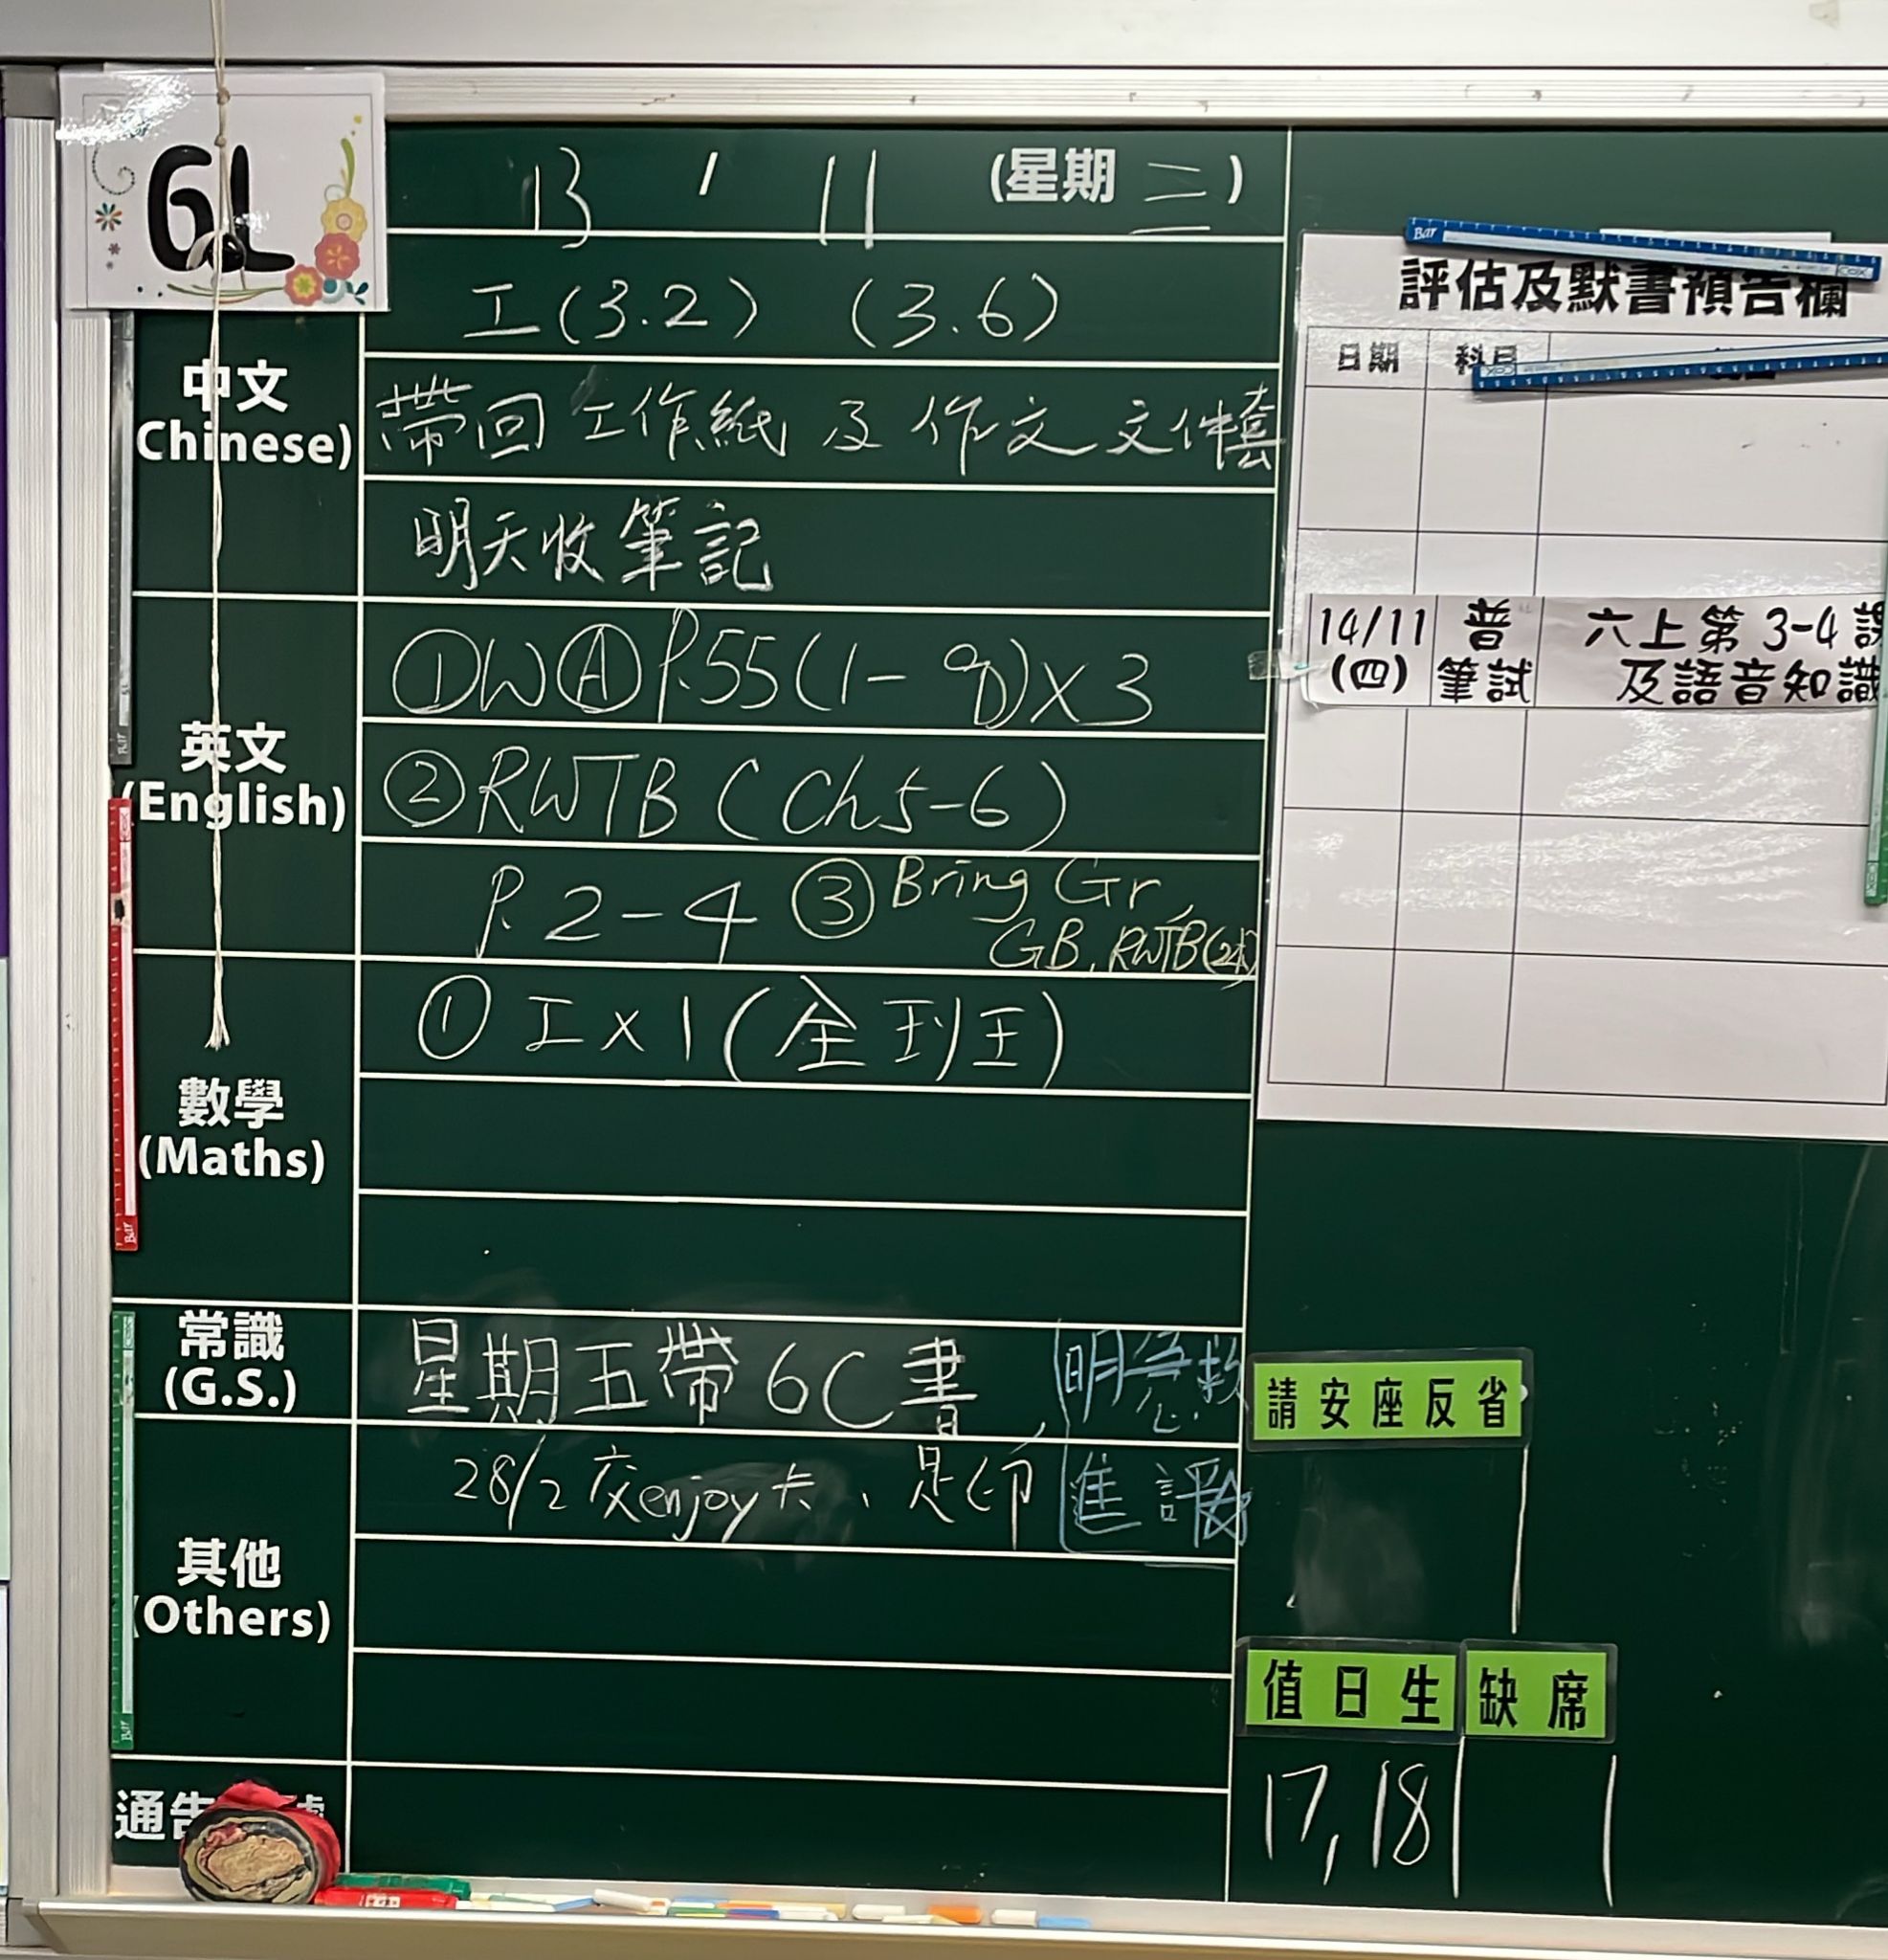 6L
13 / 11 (星期 三)
工(3.2) (3.6)
中文
Chinese)
帶回工作紙及作文文件套
明天收筆記
英文
(English)
①W Ⓐ P.55(1-9)×3
②RWTB (Ch5-6)
P.2-4 ③Bring Gr,
GB, RWTB(2本)
數學
(Maths)
① 工×1(全班)
常識
(G.S.)
星期五帶6C書
其他
(Others)
28/2交enjoy卡、
進
通告
評估及默書預告欄
日期 科目
14/11
(四)
普
筆試
六上第3-4課
及語音知識
請安座反省
值日生 缺席
17,18
Bar
COX